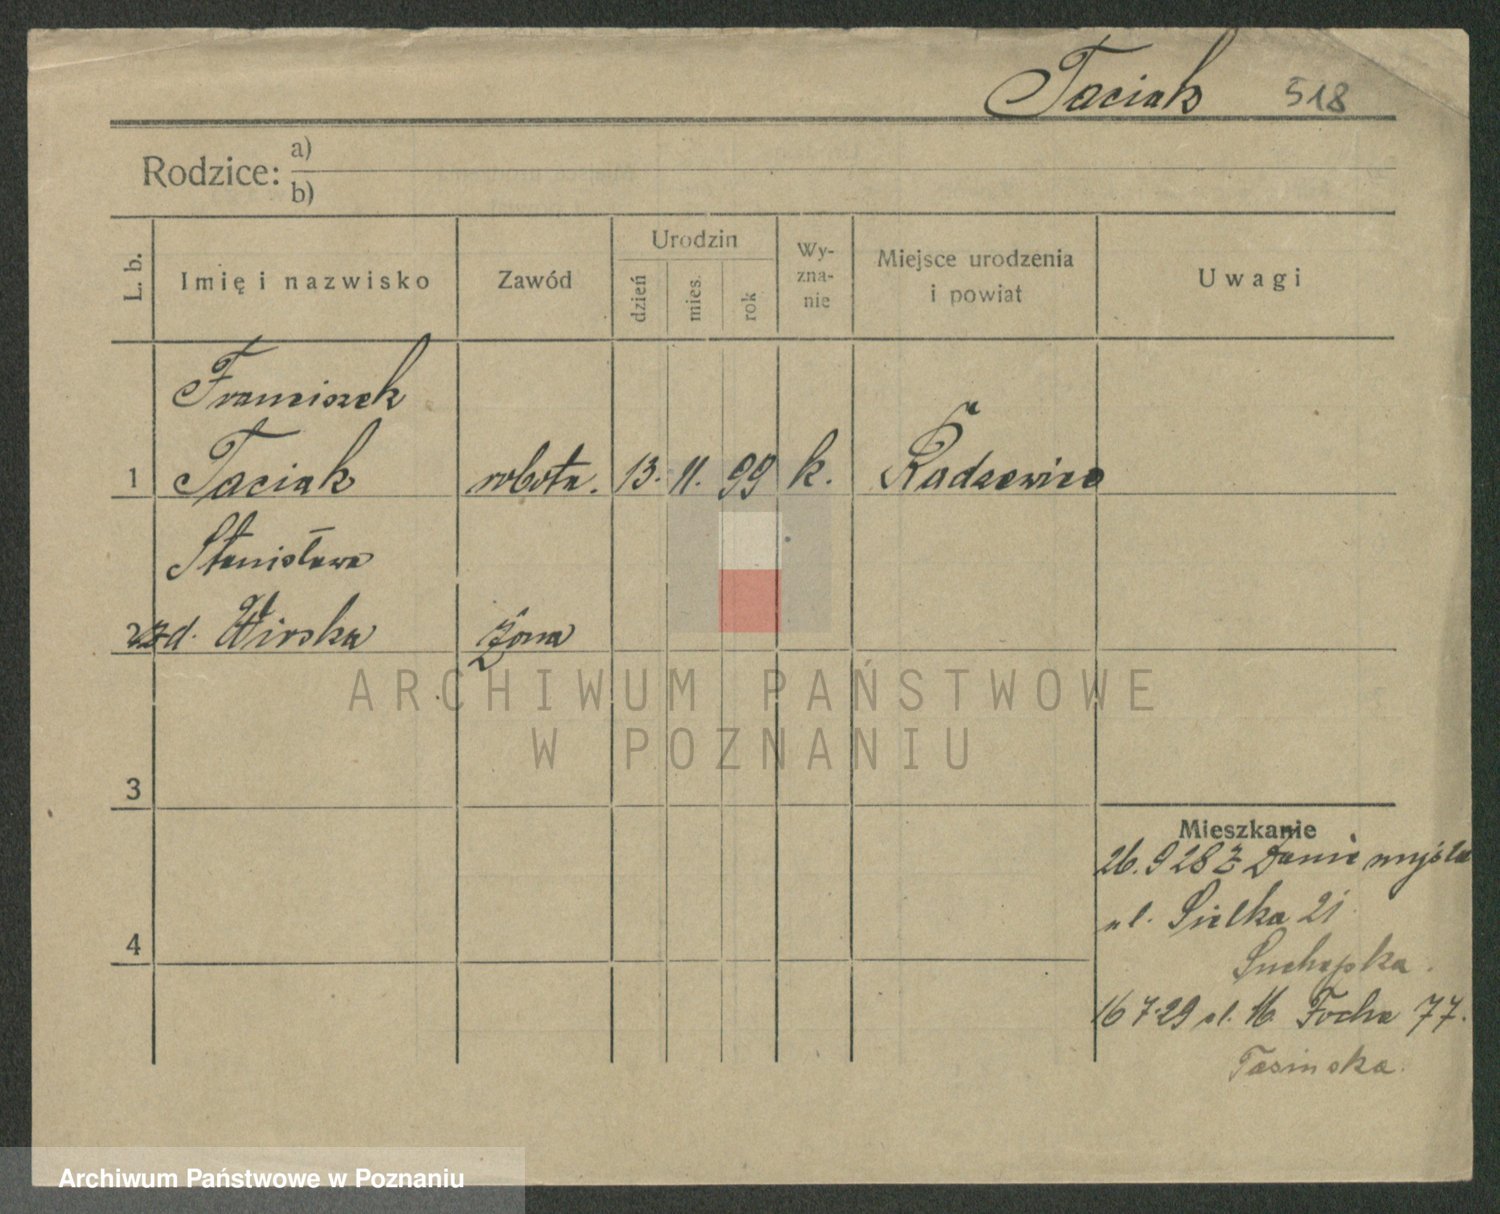 Taciak 518
Rodzice: a)
b)
L. b.
Imię i nazwisko
Zawód
Urodzin
dzień
mies.
rok
Wy-
zna-
nie
Miejsce urodzenia
i powiat
Uwagi
Franciszek
1 Taciak robotn. 13. 11. 99 k. Radzewice
Stanisława
2 zd. Wirska żona
3
4
Mieszkanie
26. 9 28 z
ul. Sielka 21
16 7.29 ul. M. Focha 77.
Tasinska.
ARCHIWUM PAŃSTWOWE
W POZNANIU
Archiwum Państwowe w Poznaniu